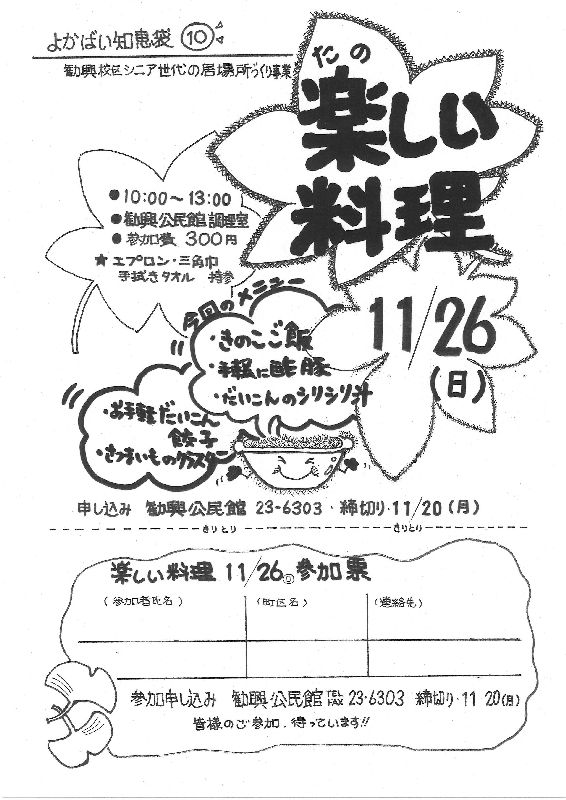 よかばい知恵袋 ⑩
勧興校区シニア世代の居場所づくり事業
たの
楽しい
料理
●10:00〜13:00
●勧興公民館調理室
●参加費 300円
★エプロン・三角巾
手拭きタオル 持参
11/26
(日)
今回のメニュー
・きのこご飯
・手軽に酢豚
・だいこんのシリシリ汁
・お手軽だいこん
餃子
・さつまいものクラスター
申し込み 勧興公民館 23-6303・締切り・11/20(月)
きりとり きりとり
楽しい料理 11/26㊐参加票
(参加者氏名) (町区名) (連絡先)
参加申し込み 勧興公民館 TEL FAX 23-6303 締切り・11 20(月)
皆様のご参加、待っています!!